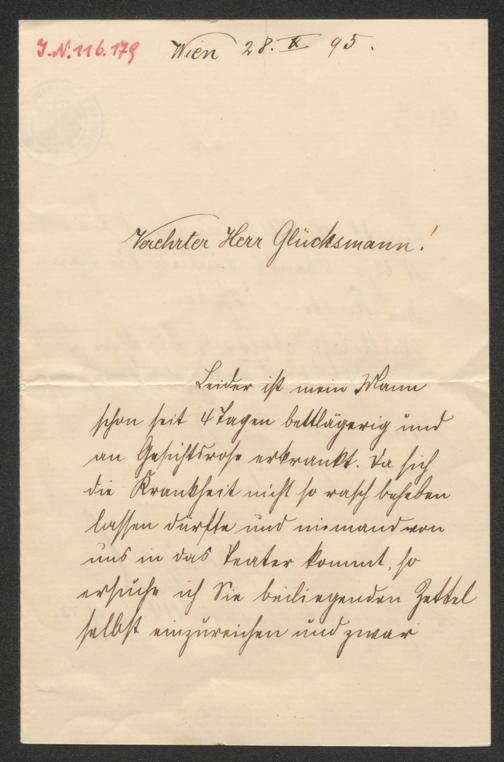 I.N. 116.179
Wien 28. X 95.
Verehrter Herr Glücksmann!
Leider ist mein Mann
schon seit 4 Tagen bettlägerig und
an Gesichtsrose erkrankt. Da sich
die Krankheit nicht so rasch beheben
lassen dürfte und niemand von
uns in das Teater kommt, so
ersuche ich Sie beiliegenden Zettel
selbst einzureichen und zwar